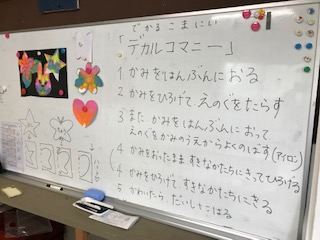 でかるこまにい
「デカルコマニー」
1 かみをはんぶんにおる
2 かみをひろげて えのぐをたらす
3 また かみを はんぶんに おって
えのぐをかみのうえからよくのばす(アイロン)
4 かみをおったまま すきなかたちにきってひろげる
4 かみをひろげて すきなかたちにきる
5 かわいたら だいしにはる